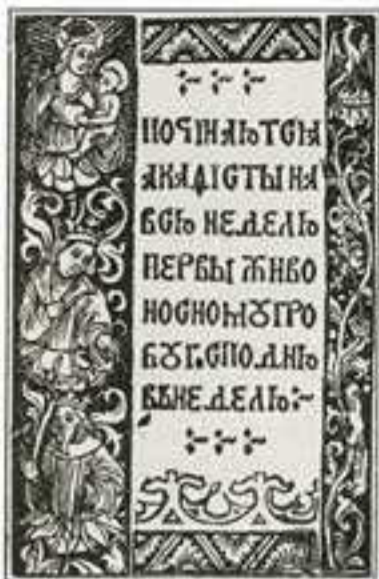 ПОЧІНАЮТСѦ
АКАѲІСТЫ НА
ВСЮ НЕДЕЛЮ
ПЕРВЫ ЖИВО
НОСНОМꙊ ГРО
БꙊ Г.СПОДНЮ
ВЪ НЕДЕЛЮ